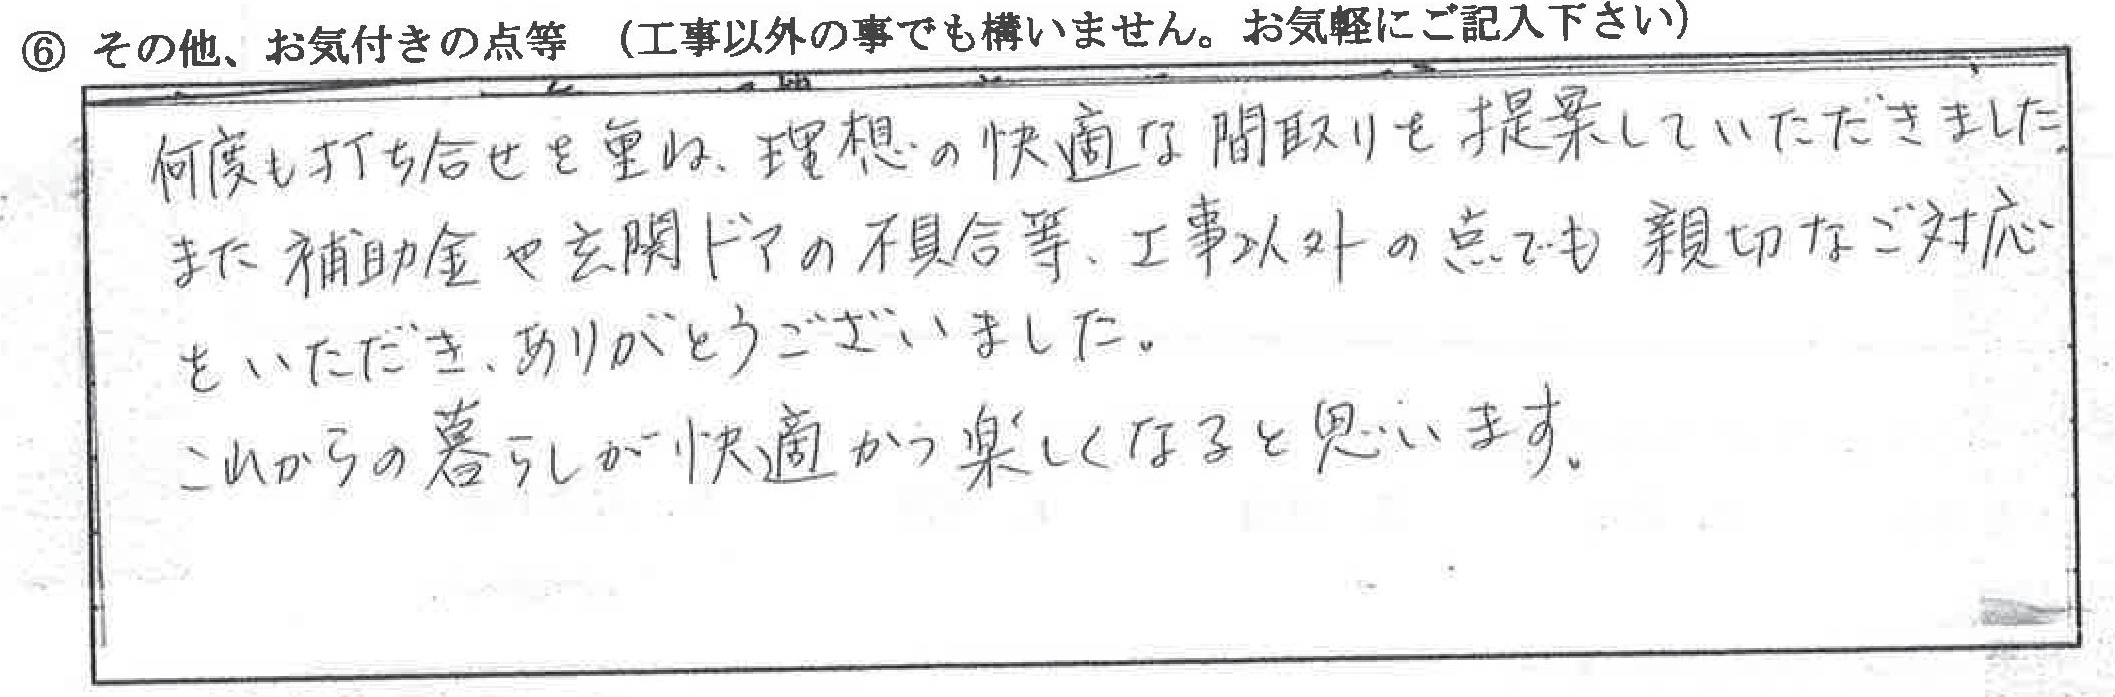 ⑥ その他、お気付きの点等 （工事以外の事でも構いません。お気軽にご記入下さい）
何度も打ち合せを重ね、理想の快適な間取りを提案していただきました。
また補助金や玄関ドアの不具合等、工事以外の点でも親切なご対応
をいただき、ありがとうございました。
これからの暮らしが快適かつ楽しくなると思います。